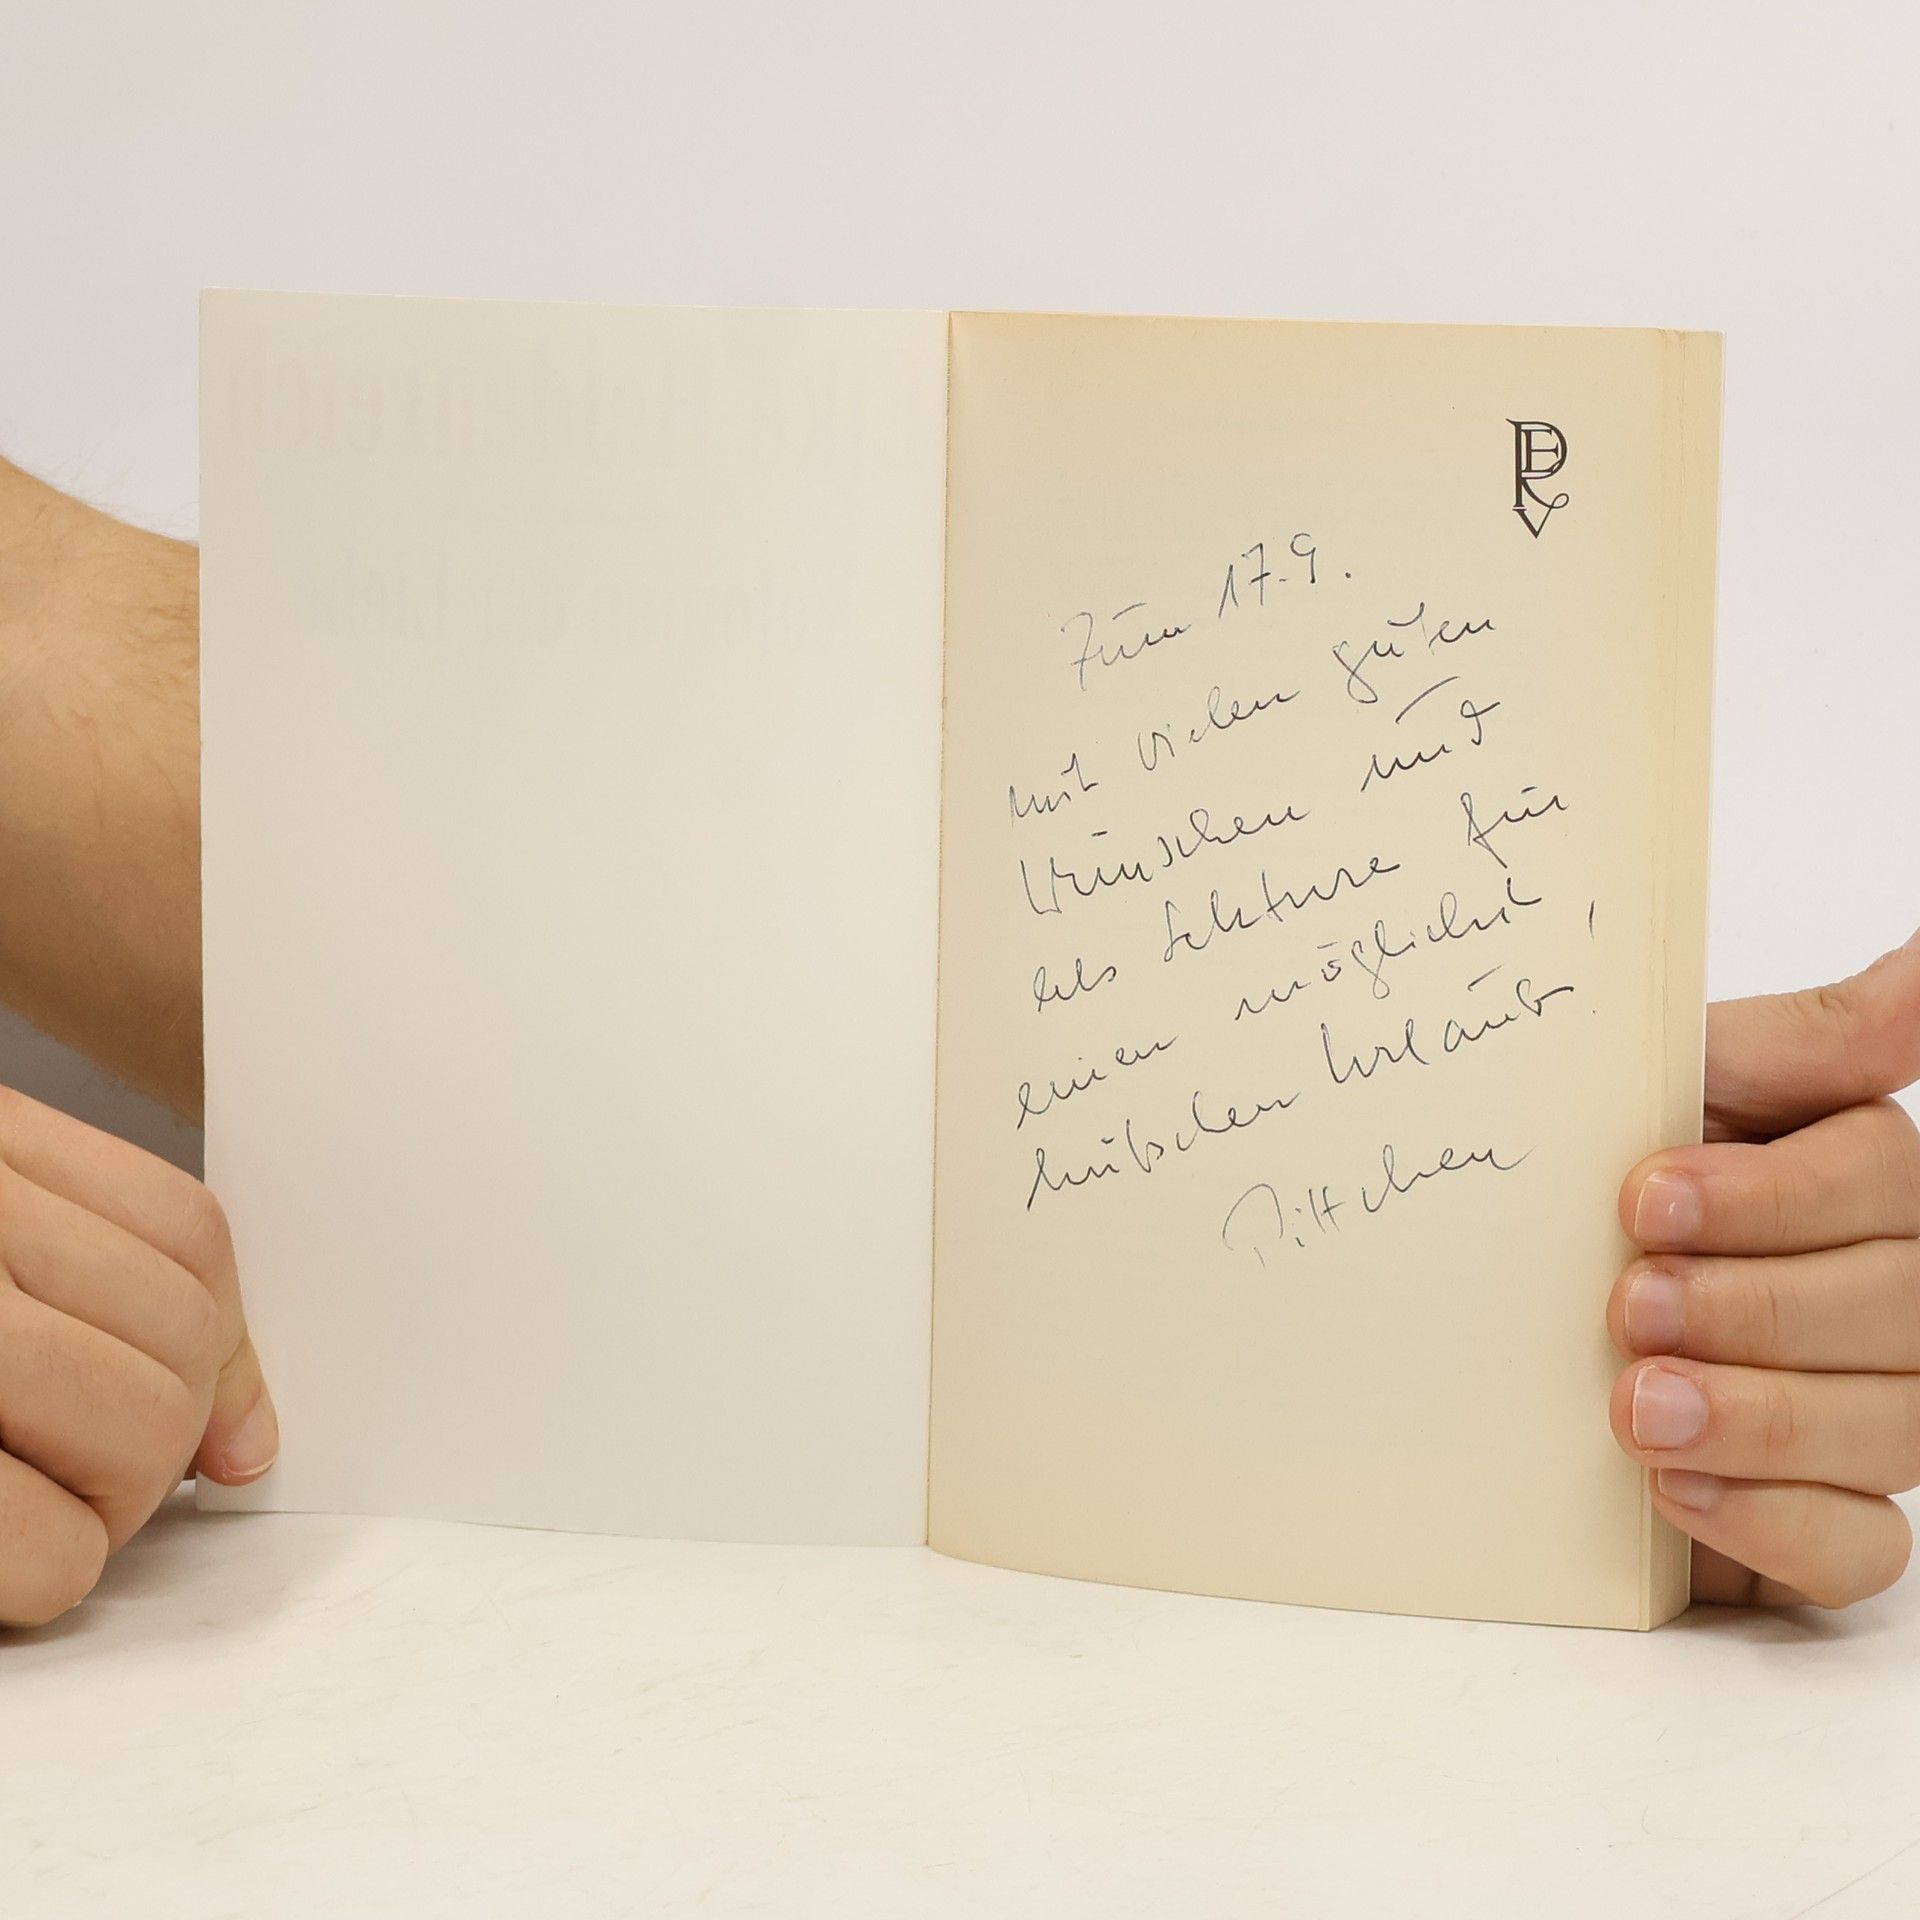 PERV
Zum 17.9.
mit vielen guten
Wünschen und
als Lektüre für
einen möglichst
hübschen Urlaub!
Pittchen